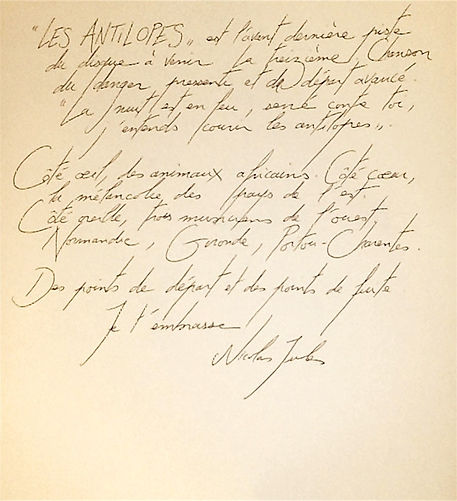 "LES ANTILOPES" est l'avant dernière piste
du disque à venir. La treizième. Chanson
du danger présent et du départ avancé.
"La nuit est en feu, serré contre toi,
j'entends courir les antilopes".
Côté œil, des animaux africains. Côté cœur,
la mélancolie des pays de l'est.
Côté oreille, trois musiciens de l'ouest.
Normandie, Gironde, Poitou-Charentes.
Des points de départ et des points de fuite
Je t'embrasse
Nicolas Jules